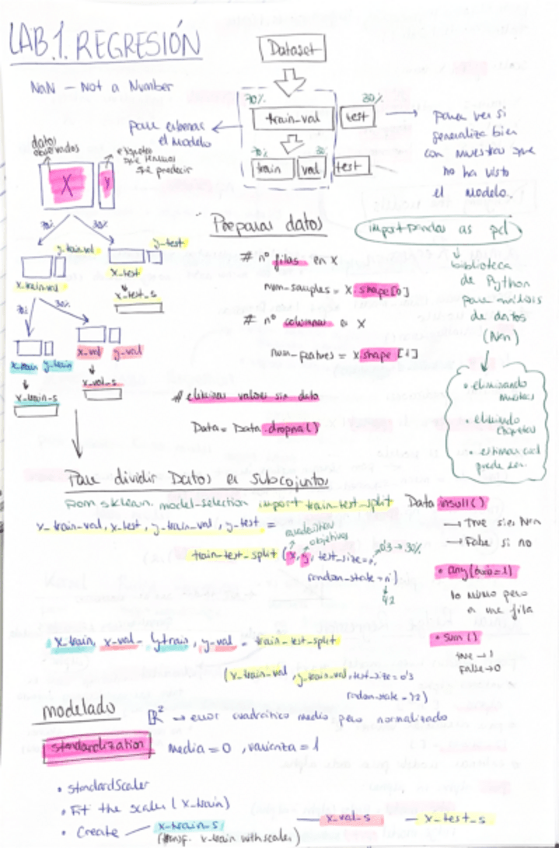 LAB.1. REGRESIÓN
NaN - Not a Number
Dataset
70%
30%
train_val
test
para entrenar
el modelo
para ver si
generaliza bien
con muestras que
no ha visto
el modelo.
train
val
test
datos
observados
etiquetas
que tenemos
que predecir
X
y
70%
30%
y-train-val
y-test
x-train-val
x-test
x-test-s
70%
30%
x-train
y-train
x-val
y-val
x-train-s
x-val-s
Preparar datos
import pandas as pd
biblioteca
de Python
para análisis
de datos
(NaN)
# nº filas en X
num_samples = X.shape[0]
# nº columnas en X
num_features = X.shape[1]
# eliminar valores sin dato
Data = Data.dropna()
• eliminando
muestras
• eliminando
• estimar cual
puede ser.
Para dividir Datos en Subconjuntos
from sklearn.model_selection import train_test_split
x-train-val, x-test, y-train-val, y-test =
objetivos
train-test-split (x, y, test_size=n,
0'3→30%
random-state=n)
42
Data.isnull()
→ True si es NaN
→ False si no
• any(axis=1)
lo mismo pero
a una fila
• sum()
true → 1
False → 0
x-train, x-val - y-train, y-val = train-test-split
(x-train-val, y-train-val, test-size=0's
random-state=42)
modelado
R² → error cuadrático medio pero normalizado
standardization
media=0, varianza=1
• StandardScaler
• Fit the scaler (x-train)
• Create
x-train-s
(transf. x-train with scaler)
x-val-s
x-test-s